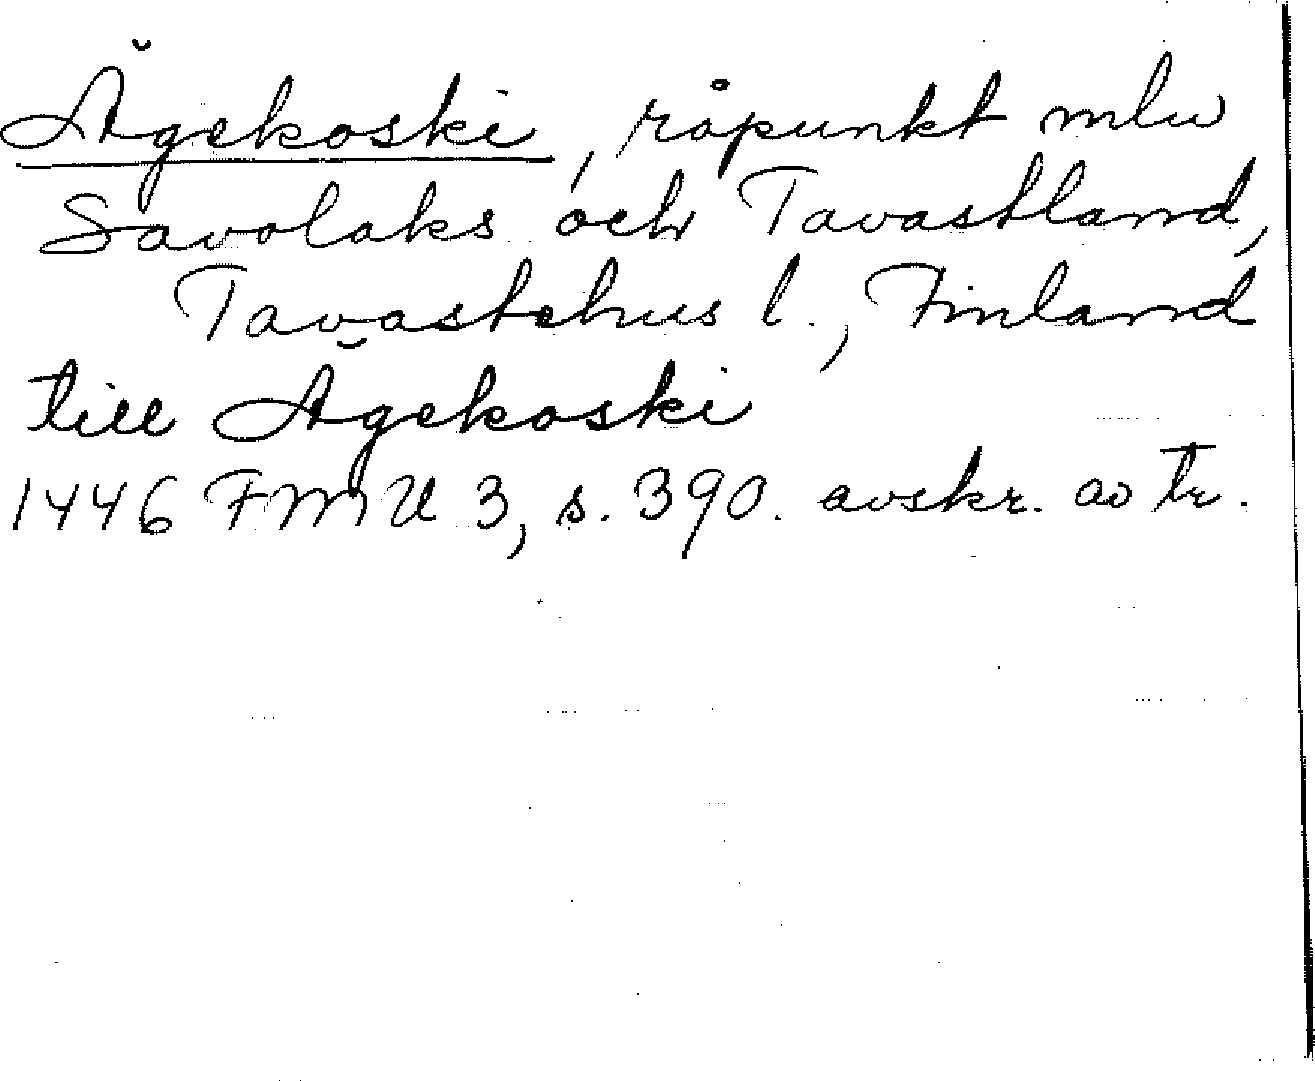 Ägekoski, råpunkt mlu
Savolaks och Tavastland,
Tavastehus l., Finland
till Ägekoski
1446 FMU 3, s. 390. avskr. av tr.